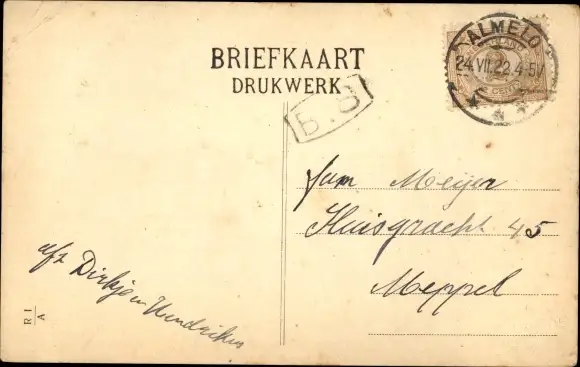 BRIEFKAART
DRUKWERK
ALMELO
24.VII.22.4-5V
CENT
B.B
fam Meijer
Kuisgracht 45
Meppel
afz Dirkje en Hendrikus
R I
A